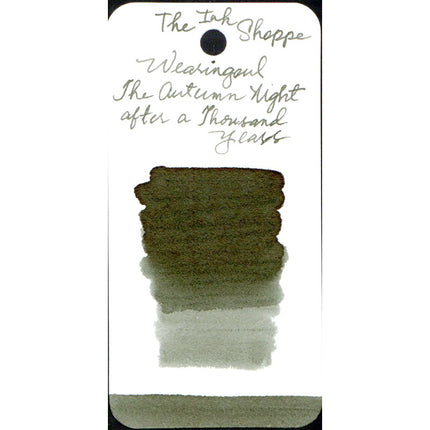 The Ink
Shoppe
Wearingeul
The Autumn Night
after a Thousand
Years